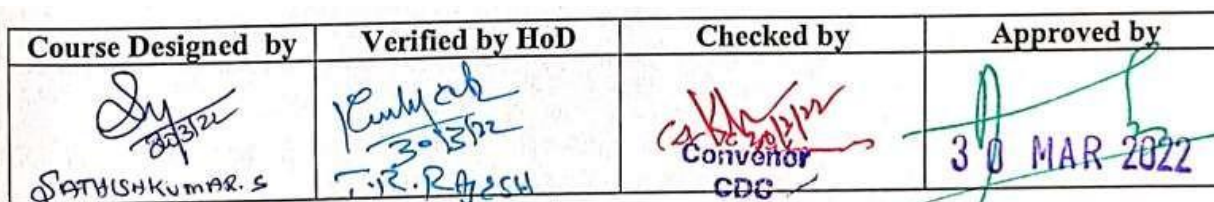 Course Designed by Verified by HoD Checked by Approved by
30/3/22
30/3/22
SATHISHKUMAR. S
T.R. RAJESH
Convenor
CDC
30 MAR 2022